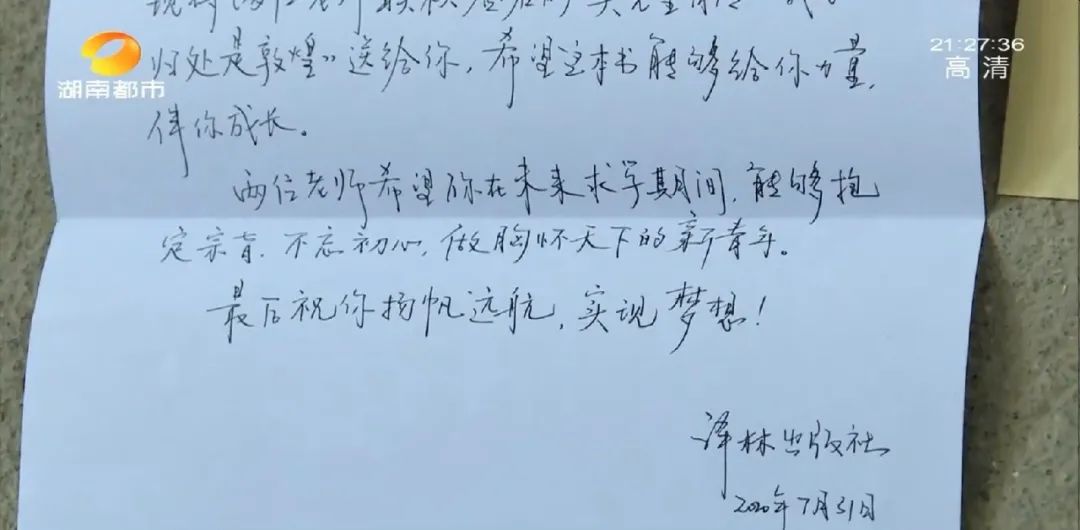 归处是敦煌”送给你,希望这本书能够给你力量,
伴你成长。
两位老师希望你在未来求学期间,能够抱
定宗旨,不忘初心,做胸怀天下的新青年。
最后祝你扬帆远航,实现梦想!
译林出版社
2020年7月31日
湖南都市
21:27:36
高清